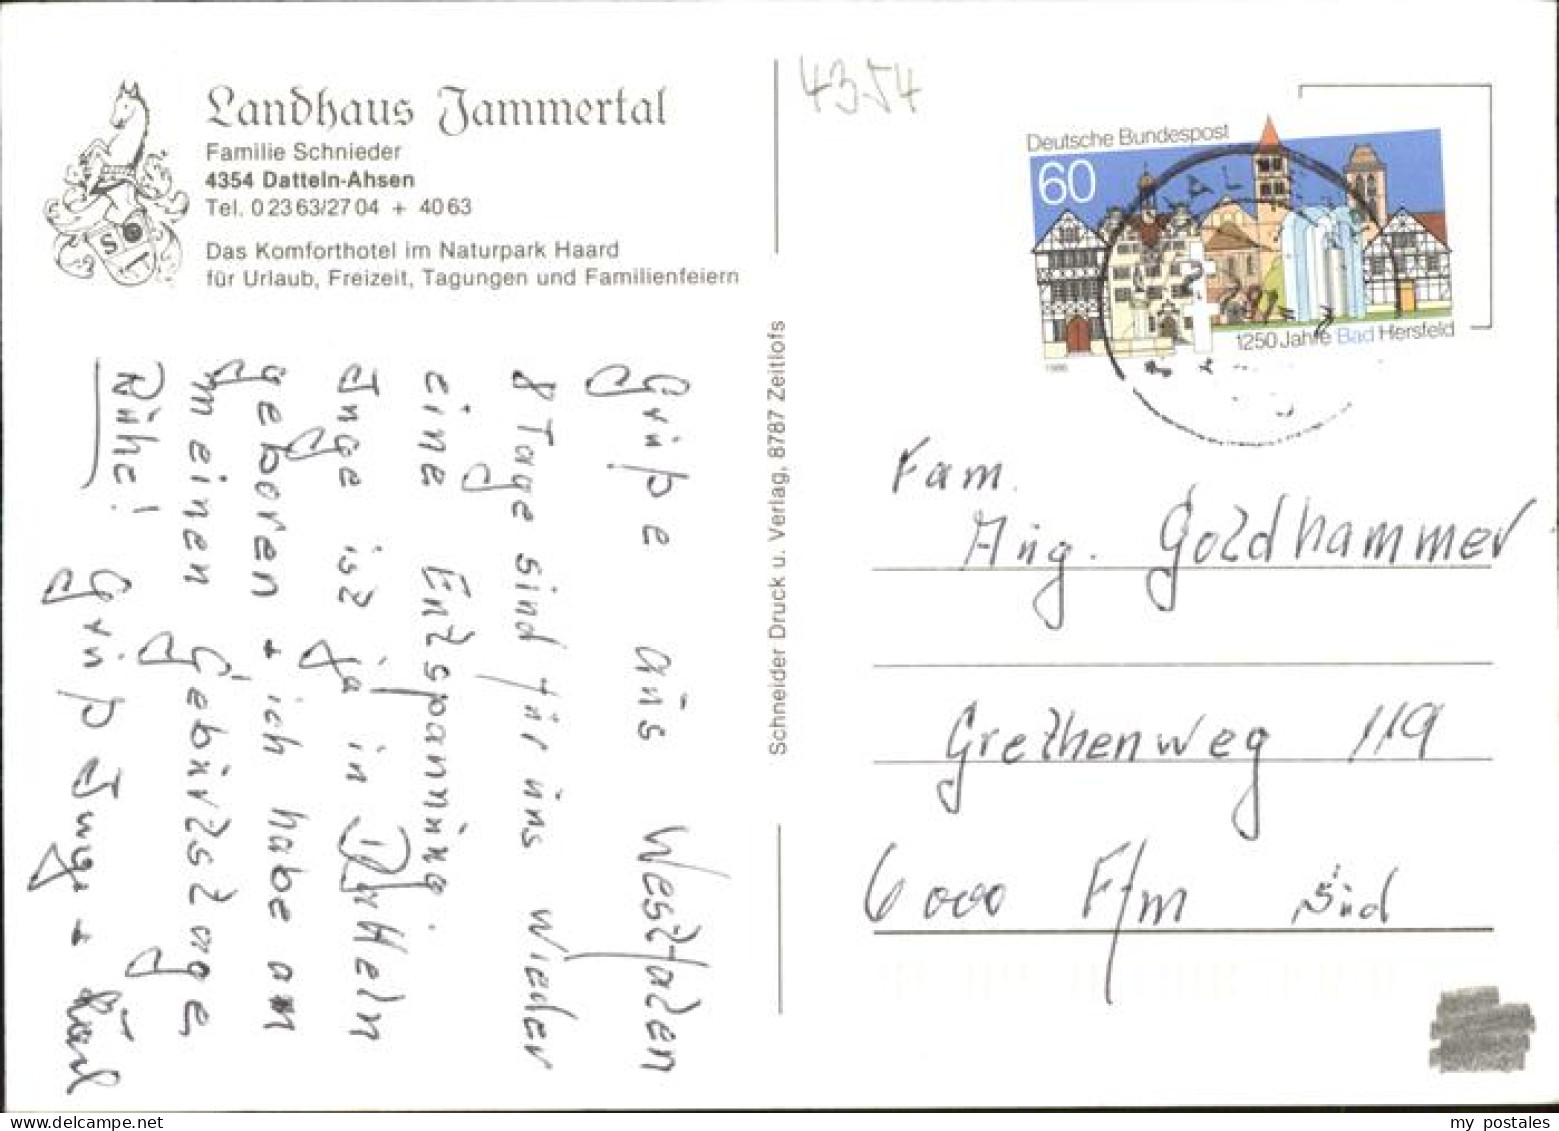 Landhaus Jammertal
Familie Schnieder
4354 Datteln-Ahsen
Tel. 0 23 63/27 04 + 40 63
Das Komforthotel im Naturpark Haard
für Urlaub, Freizeit, Tagungen und Familienfeiern
4354
Deutsche Bundespost
60
1250 Jahre Bad Hersfeld
1986
Schneider Druck u. Verlag, 8787 Zeitlofs
Grüße aus Westfalen
8 Tage sind für uns wieder
eine Entspannung.
Inge ist ja in Datteln
geboren + ich habe am
meinen Geburtstage
Ruhe!
Gruß Inge + Karl
Fam.
Aug. Goldhammer
Grethenweg 119
6000 F/m Süd
my postales